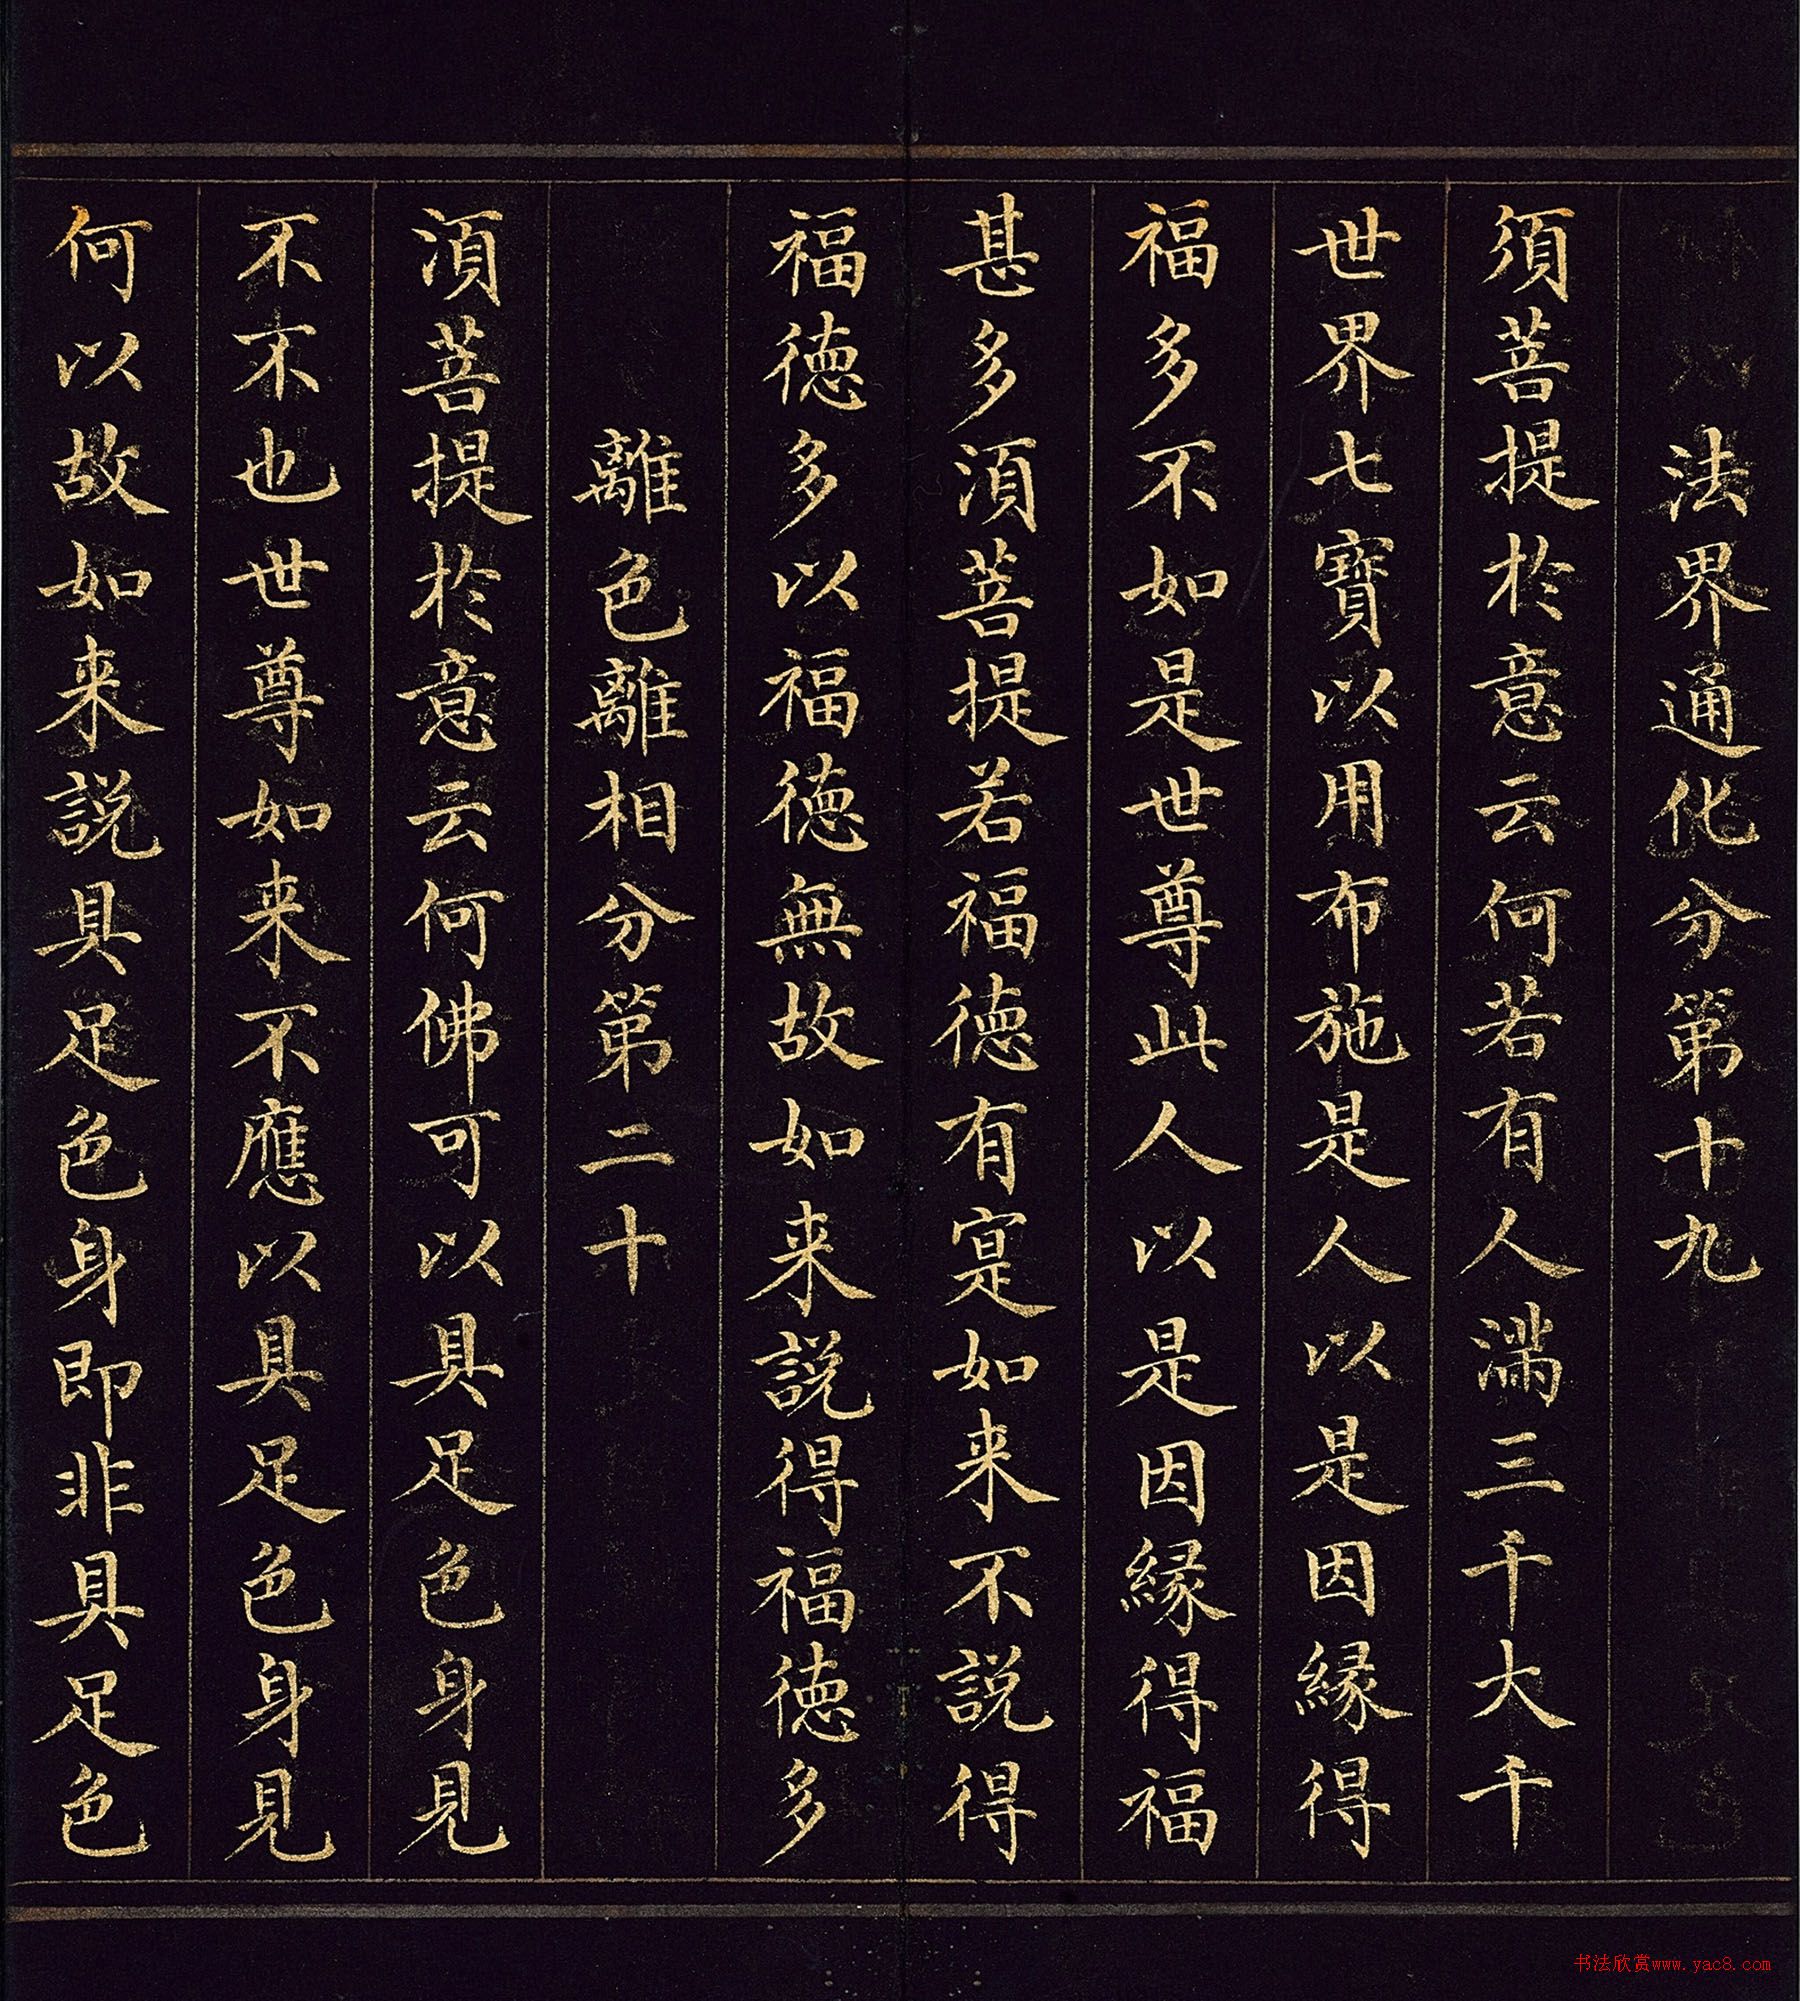 法界通化分第十九
須菩提於意云何若有人滿三千大千
世界七寶以用布施是人以是因縁得
福多不如是世尊此人以是因縁得福
甚多湏菩提若福德有寔如来不説得
福德多以福德無故如来説得福德多
離色離相分第二十
湏菩提於意云何佛可以具足色身見
不不也世尊如来不應以具足色身見
何以故如来説具足色身即非具足色
书法欣赏www.yac8.com